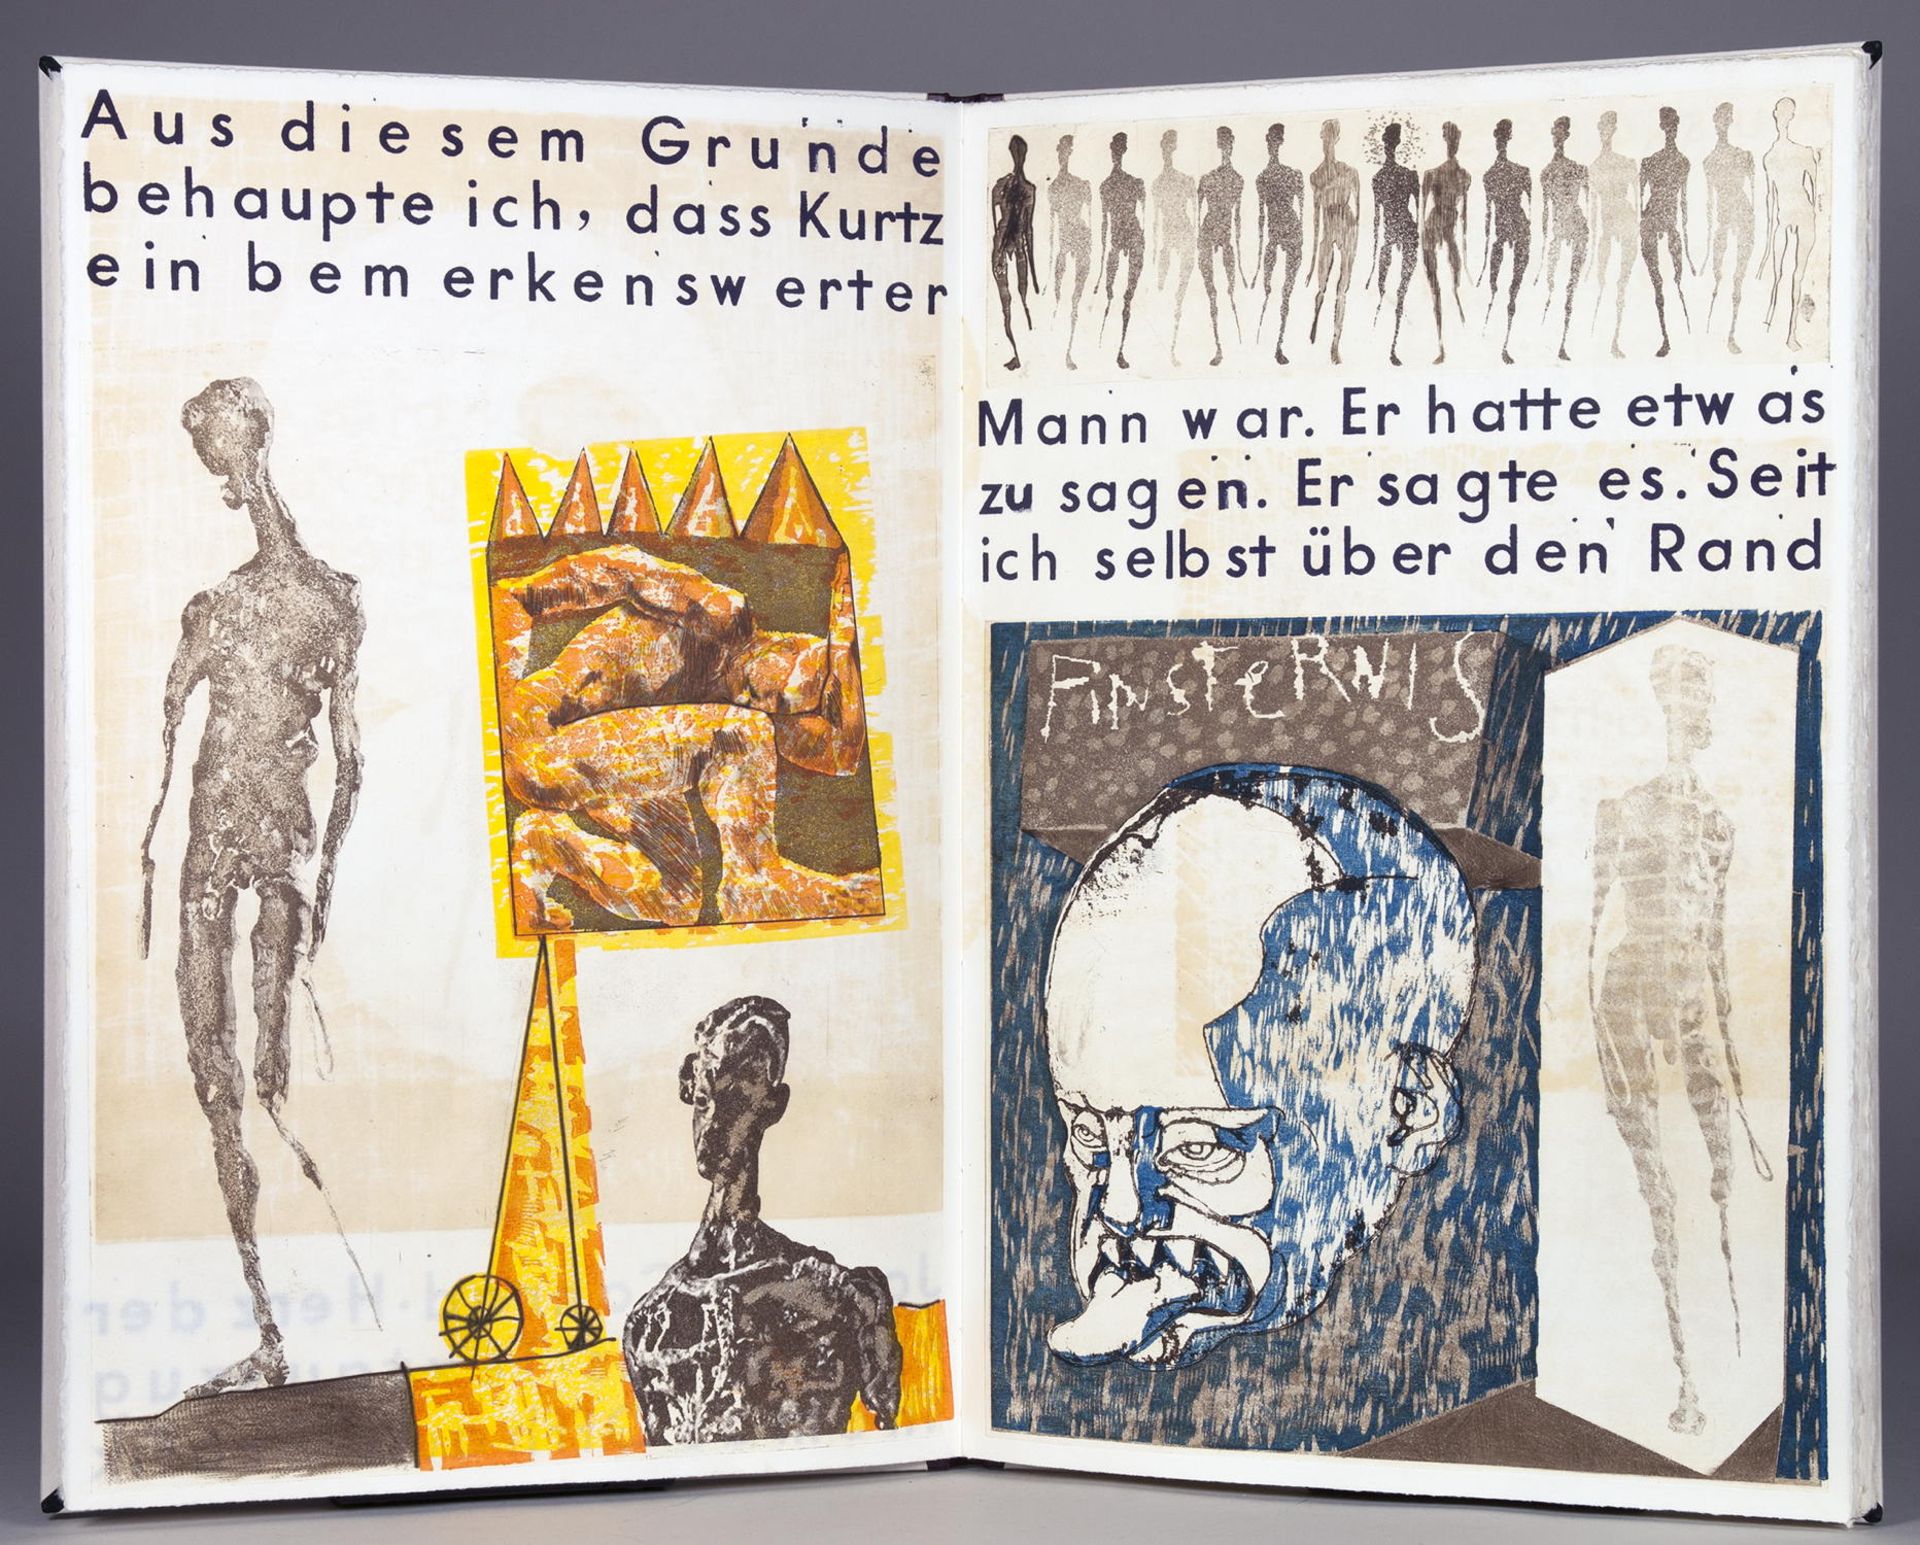 Aus diesem Grunde
behaupte ich, dass Kurtz
ein bemerkenswerter
Mann war. Er hatte etwas
zu sagen. Er sagte es. Seit
ich selbst über den Rand
FINSTERNIS